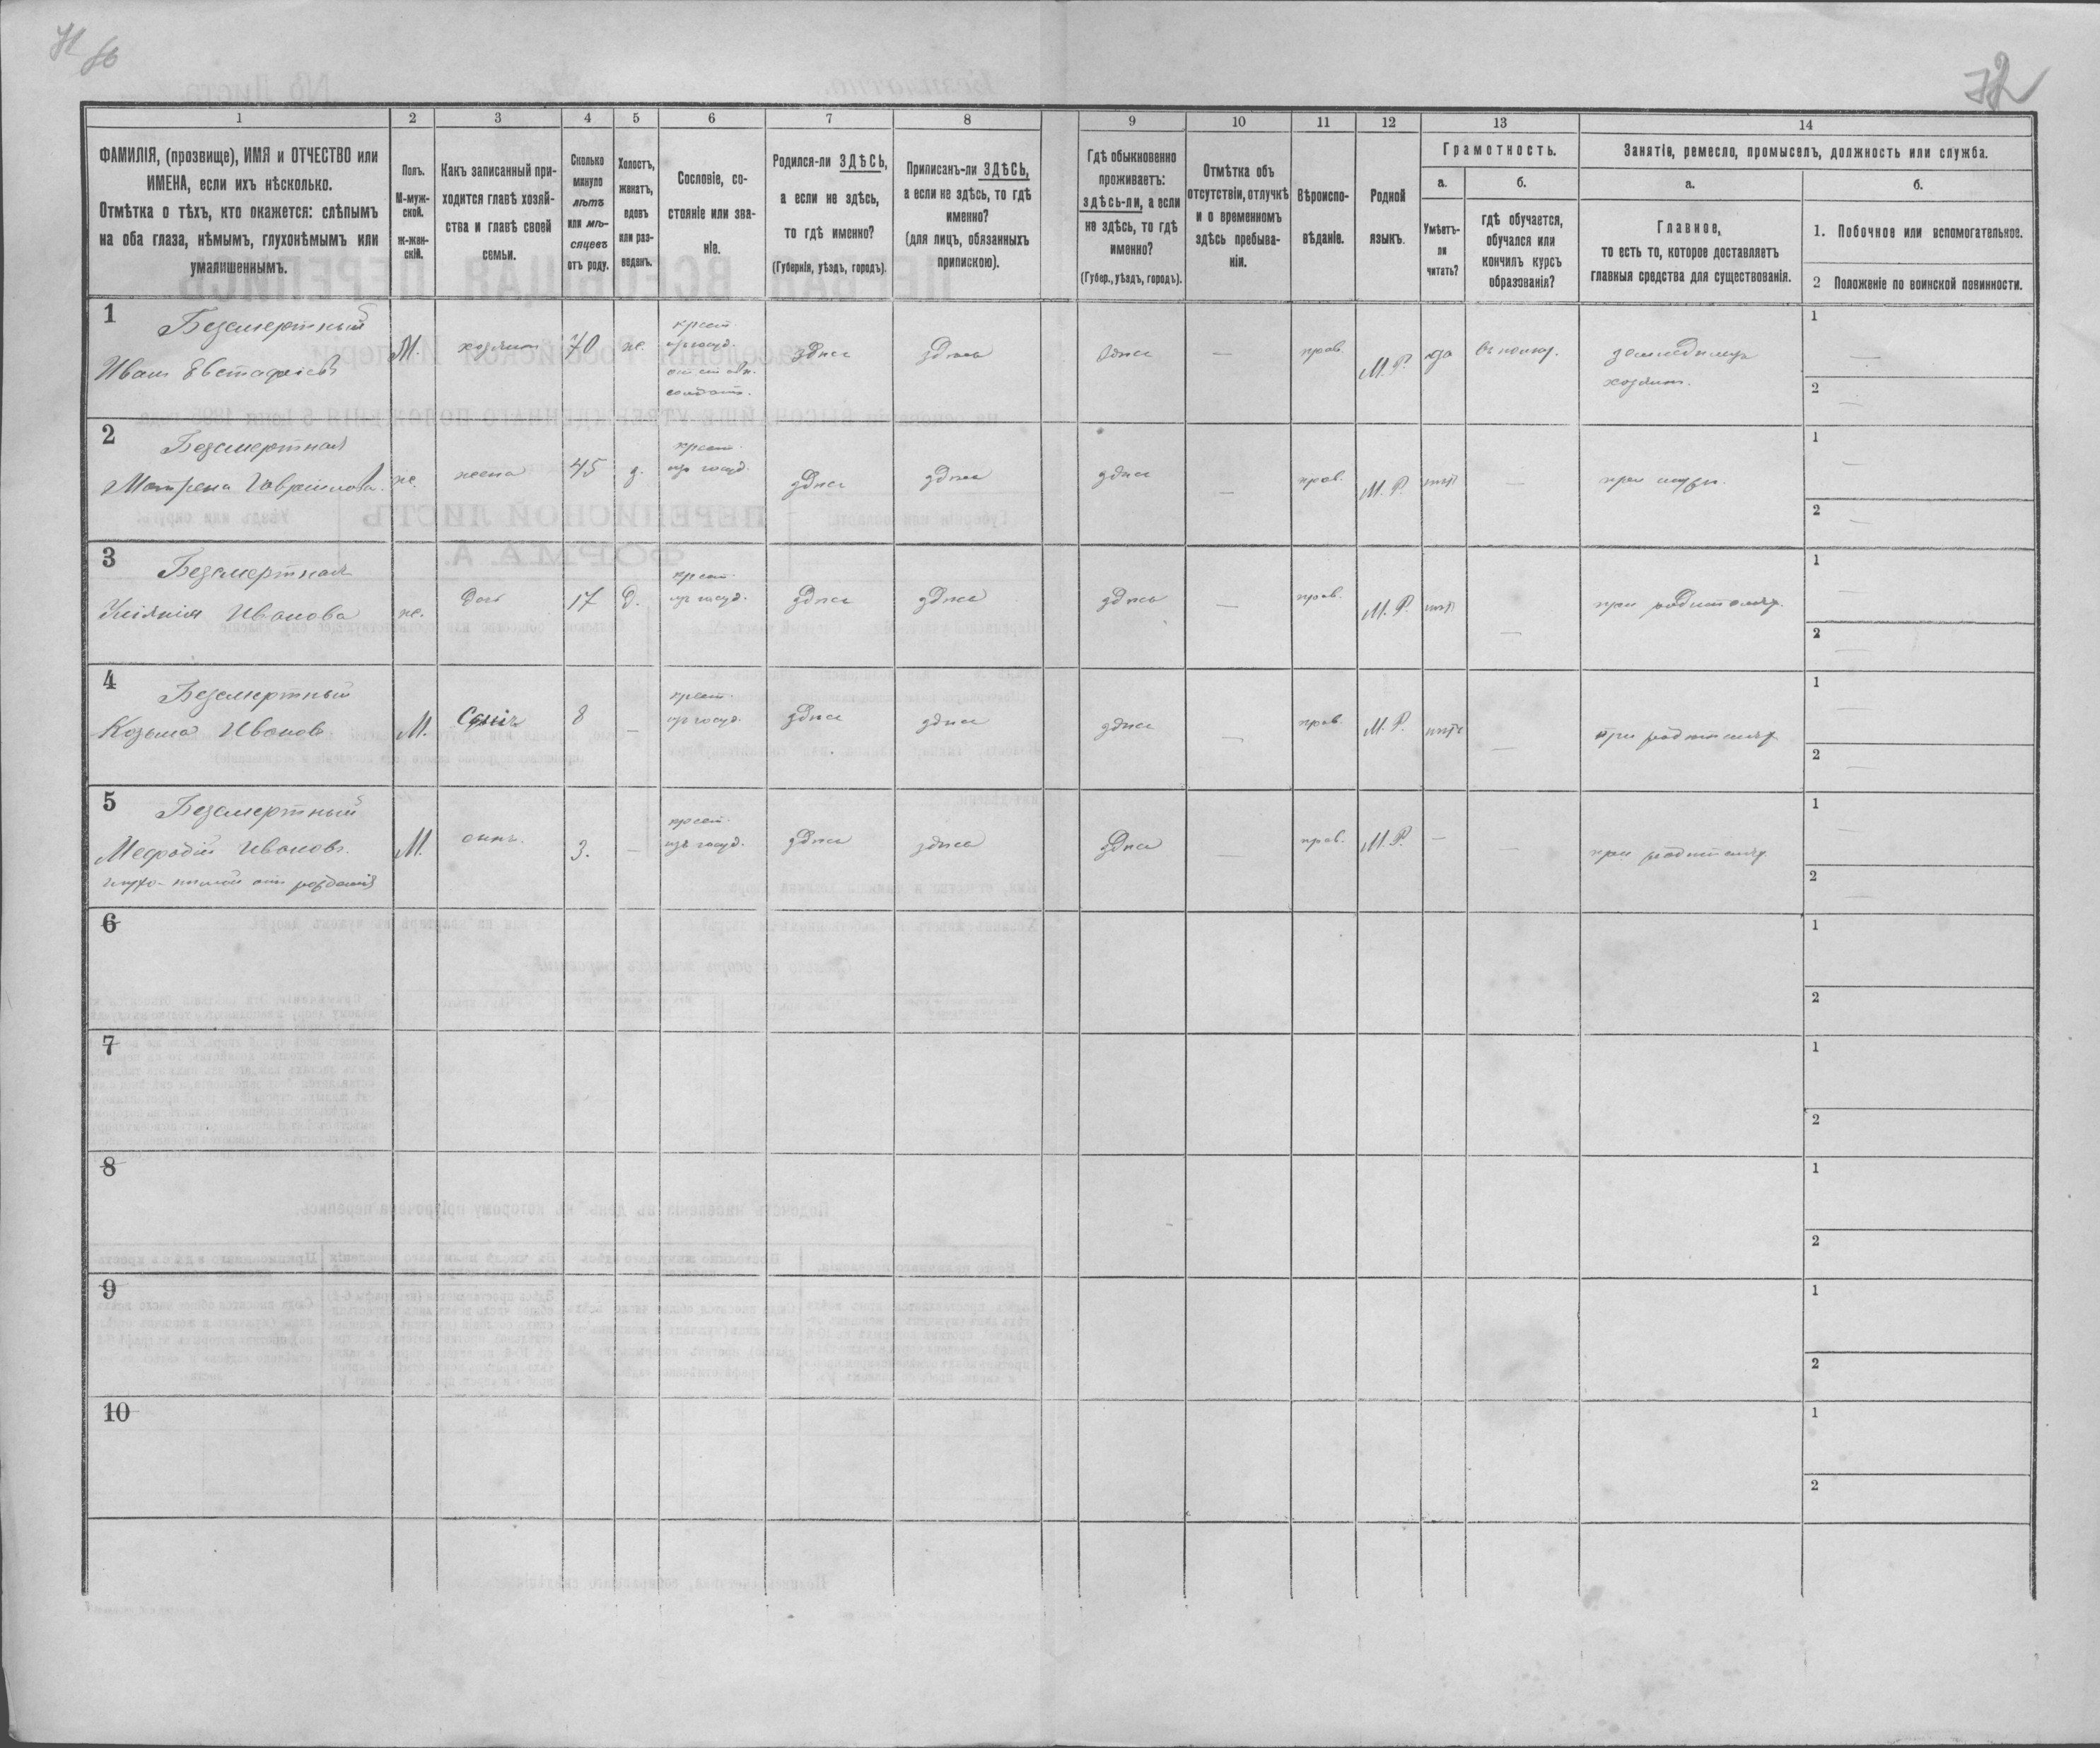 72
1 2 3 4 5 6 7 8 9 10 11 12 13 14
ФАМИЛІЯ, (прозвище), ИМЯ и ОТЧЕСТВО или
ИМЕНА, если ихъ нѣсколько.
Отмѣтка о тѣхъ, кто окажется: слѣпымъ
на оба глаза, нѣмымъ, глухонѣмымъ или
умалишеннымъ.
Полъ.
М-муж-
ской.
Ж-жен-
скій.
Какъ записанный при-
ходится главѣ хозяй-
ства и главѣ своей
семьи.
Сколько
минуло
лѣтъ
или мѣ-
сяцевъ
отъ роду.
Холостъ,
женатъ,
вдовъ
или раз-
веденъ.
Сословіе, со-
стояніе или зва-
ніе.
Родился-ли ЗДѢСЬ,
а если не здѣсь,
то гдѣ именно?
(Губернія, уѣздъ, городъ).
Приписанъ-ли ЗДѢСЬ,
а если не здѣсь, то гдѣ
именно?
(для лицъ, обязанныхъ
припискою).
Гдѣ обыкновенно
проживаетъ:
здѣсь-ли, а если
не здѣсь, то гдѣ
именно?
(Губер., уѣздъ, городъ).
Отмѣтка объ
отсутствіи, отлучкѣ
и о временномъ
здѣсь пребыва-
ніи.
Вѣроиспо-
вѣданіе.
Родной
языкъ.
Грамотность.
а.
Умѣетъ-
ли
читать?
б.
гдѣ обучается,
обучался или
кончилъ курсъ
образованія?
Занятіе, ремесло, промыселъ, должность или служба.
а.
Главное,
то есть то, которое доставляетъ
главныя средства для существованія.
б.
1. Побочное или вспомогательное.
2 Положеніе по воинской повинности.
1
Безсмертный
Иванъ Евстафіевъ
М. хозяин 70 ж.
крест.
из госуд.
солдат.
здѣсь здѣсь здѣсь — прав. М. Р. да
земледѣлец
хозяин.
1 —
2 —
2
Безсмертная
Матрена Гаврилова
ж. жена 45 з.
крест.
из госуд.
здѣсь здѣсь здѣсь — прав. М. Р. нѣт — при мужѣ.
1 —
2 —
3
Безсмертная
Ивонова
ж. Дочь 17 д.
крест.
из госуд.
здѣсь здѣсь здѣсь — прав. М. Р. нѣт — при родителях.
1 —
2 —
4
Безсмертный
Козьма Ивонов
М. Сынъ 8 —
крест.
из госуд.
здѣсь здѣсь здѣсь — прав. М. Р. нѣтъ — при родителях
1 —
2 —
5
Безсмертный
Мефодій Ивоновъ.
глухо-нѣмой от рожденія
М. сынъ. 3. —
крест.
изъ госуд.
здѣсь здѣсь здѣсь — прав. М. Р. — — при родителях.
1 —
2 —
6
1
2
7
1
2
8
1
2
9
1
2
10
1
2